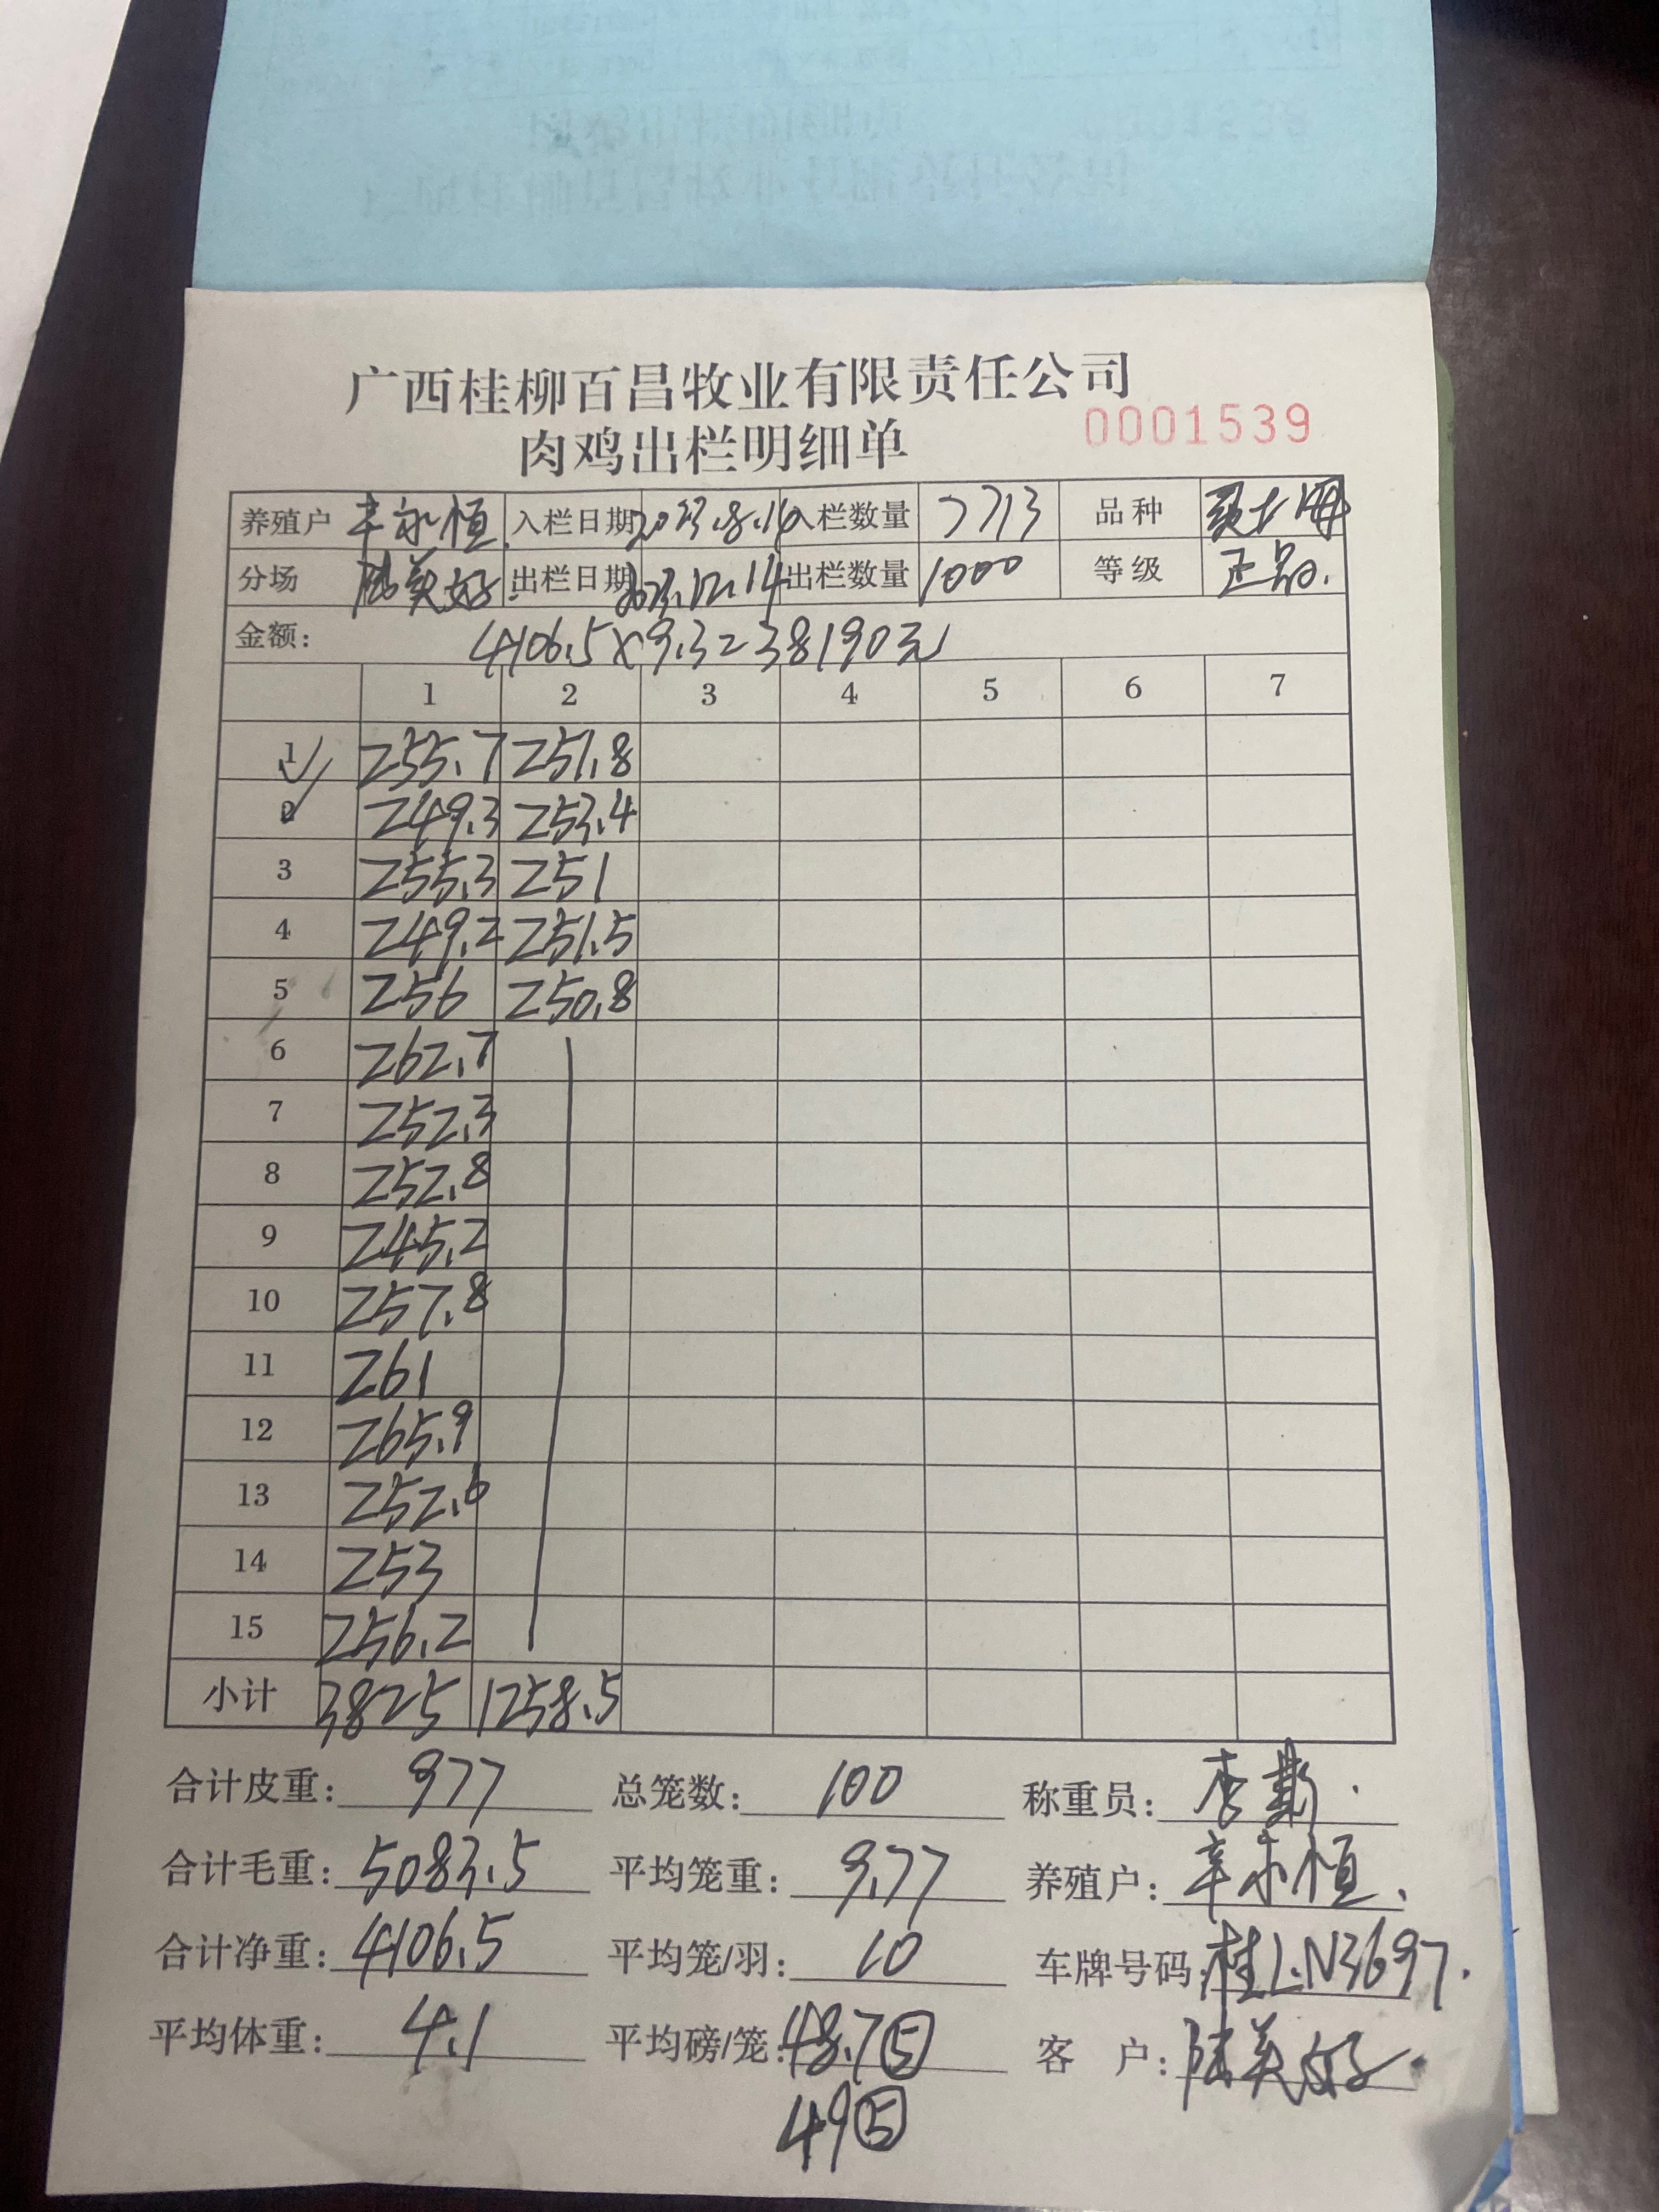 广西桂柳百昌牧业有限责任公司
肉鸡出栏明细单 0001539
养殖户 辛永恒 入栏日期 2023.8.16 入栏数量 7713 品种
分场 陆美好 出栏日期 2023.12.14 出栏数量 1000 等级 正品.
金额: 4106.5×9.3=38190元
1 2 3 4 5 6 7
1 255.7 251.8
2 249.3 253.4
3 255.3 251
4 249.2 251.5
5 256 250.8
6 262.7
7 252.3
8 252.8
9 245.2
10 257.8
11 261
12 265.9
13 252.6
14 253
15 256.2
小计 3825 1258.5
合计皮重: 977 总笼数: 100 称重员: 李
合计毛重: 5083.5 平均笼重: 9.77 养殖户: 辛永恒.
合计净重: 4106.5 平均笼/羽: 10 车牌号码: 桂L.N3697.
平均体重: 4.1 平均磅/笼: 48.7⑤ 客户: 陆美好.
49⑤